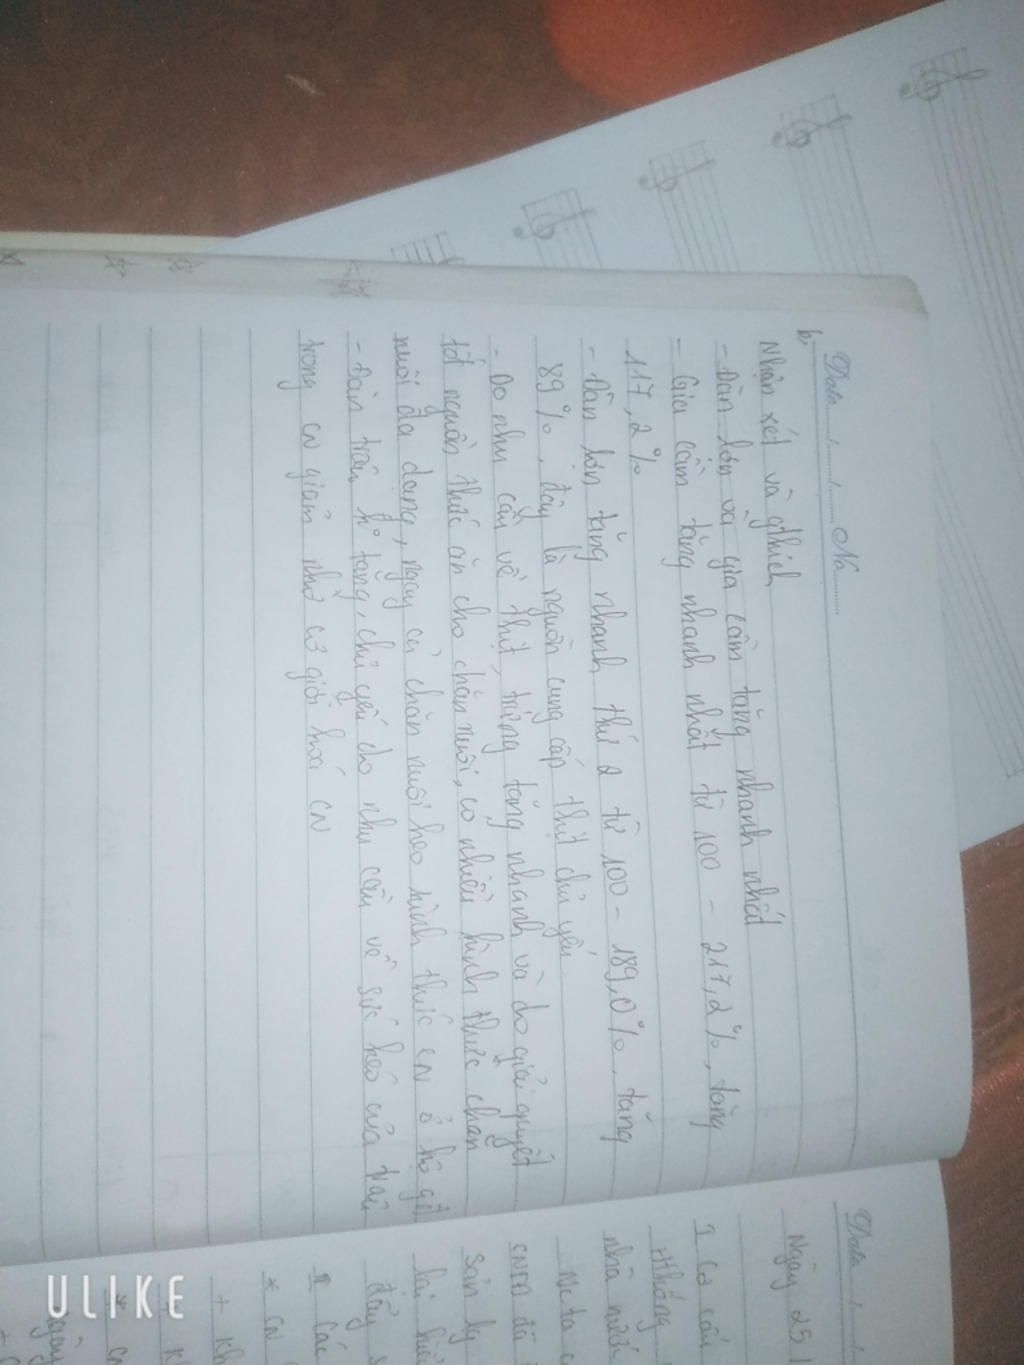 Date ........ No ........
b,
Nhận xét và gthích
- Đàn lợn và gia cầm tăng nhanh nhất
- Gia cầm tăng nhanh nhất từ 100 - 217,2%, tăng
117,2%
- Đàn lợn tăng nhanh thứ 2 từ 100 - 189,0%, tăng
89%, đây là nguồn cung cấp thịt chủ yếu
- Do nhu cầu về thịt, trứng tăng nhanh và do giải quyết
tốt nguồn thức ăn cho chăn nuôi, có nhiều hình thức chăn
nuôi đa dạng, ngay cả chăn nuôi heo hình thức CN ở hộ gđ
- Đàn trâu k tăng, chủ yếu do nhu cầu về sức kéo của trâu
trong CN giảm nhờ cơ giới hoá CN
Date
Ngày 25
1 Cơ cấu
nhà nước
Nc ta
đã
Sản
đẩy
Các
* CN
+ Kh
ULIKE